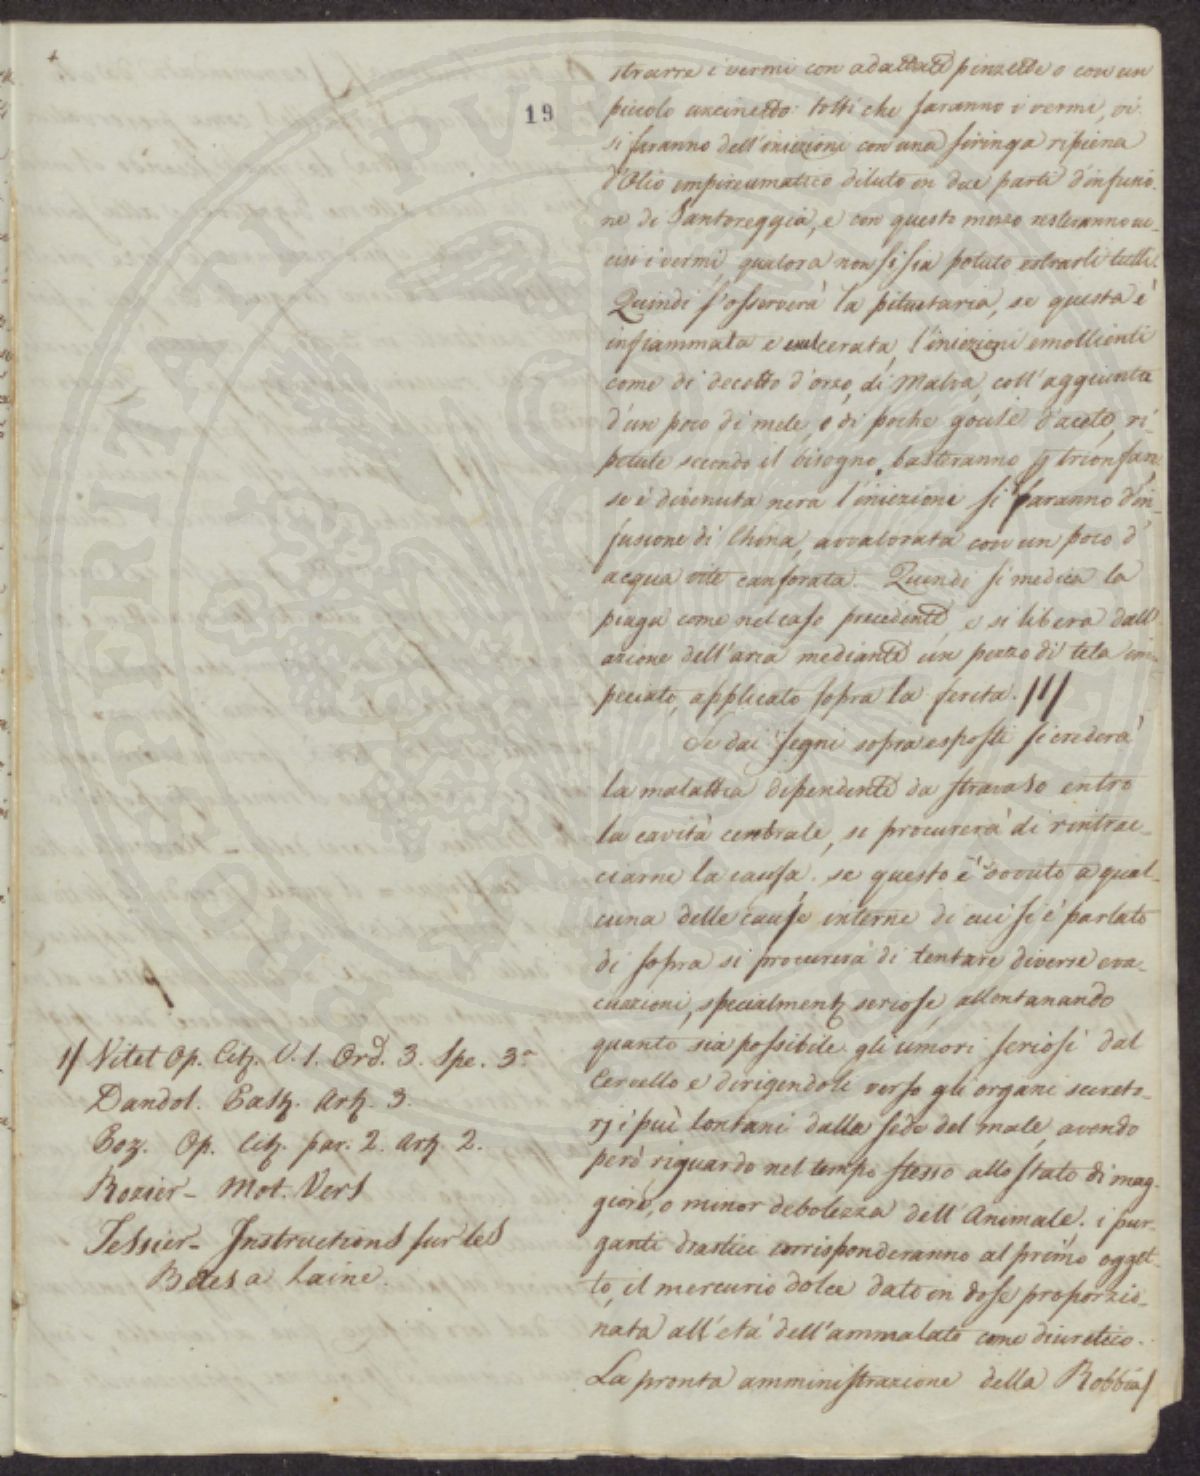 19
strarre i vermi con adattate pinzette o con un
piccolo uncinetto: tolti che saranno i vermi, vi
si faranno dell'iniezioni con una siringa ripiena
d'Olio empireumatico diluto in due parti d'infusio-
ne di Santoreggia, e con questo mezzo resteranno uc-
cisi i vermi, qualora non si sia potuto estrarli tutti.
Quindi s'osserverà la pituitaria, se questa è
infiammata e esulcerata, l'iniezioni emollienti
come di decotto d'orzo, di Malva, coll'aggiunta
d'un poco di mele, o di poche gocile d'aceto, ri-
petute secondo il bisogno, basteranno p trionfare,
se è divenuta nera l'iniezione si faranno d'in-
fusione di China, avvalorata con un poco d'
acqua vite canforata. Quindi si medica la
piaga come nel caso precedente, e si libera dall'
azione dell'aria mediante un pezzo di tela im-
peciato, applicato sopra la ferita. /1/
Se dai segni sopra esposti si crederà
la malattia dipendente da stravaso entro
la cavità cerebrale, si procurerà di rintrac-
ciarne la causa. se questo è dovuto a qual-
cuna delle cause interne di cui si è parlato
di sopra si procurerà di tentare diverse eva-
cuazioni, specialment seriose, allontanando
quanto sia possibile gli umori seriosi dal
Cervello e dirigendoli verso gli organi secreto-
rj i più lontani dalla sede del male, avendo
però riguardo nel tempo stesso allo stato di mag-
giore, o minor debolezza dell'Animale. i pur-
ganti drastici corrisponderanno al primo ogget-
to, il mercurio dolce dato in dose proporzio-
nata all'età dell'ammalato come diuretico.
La pronta amministrazione della Robbia/
1/ Vitet Op. Cit. V. 1. Ord. 3. Spe. 3a
Dandol. East. Art. 3.
Boz. Op. Cit. par. 2. Art. 2.
Rozier - Mot. Vers
Tessier - Instructions sur les
Betes a Laine.